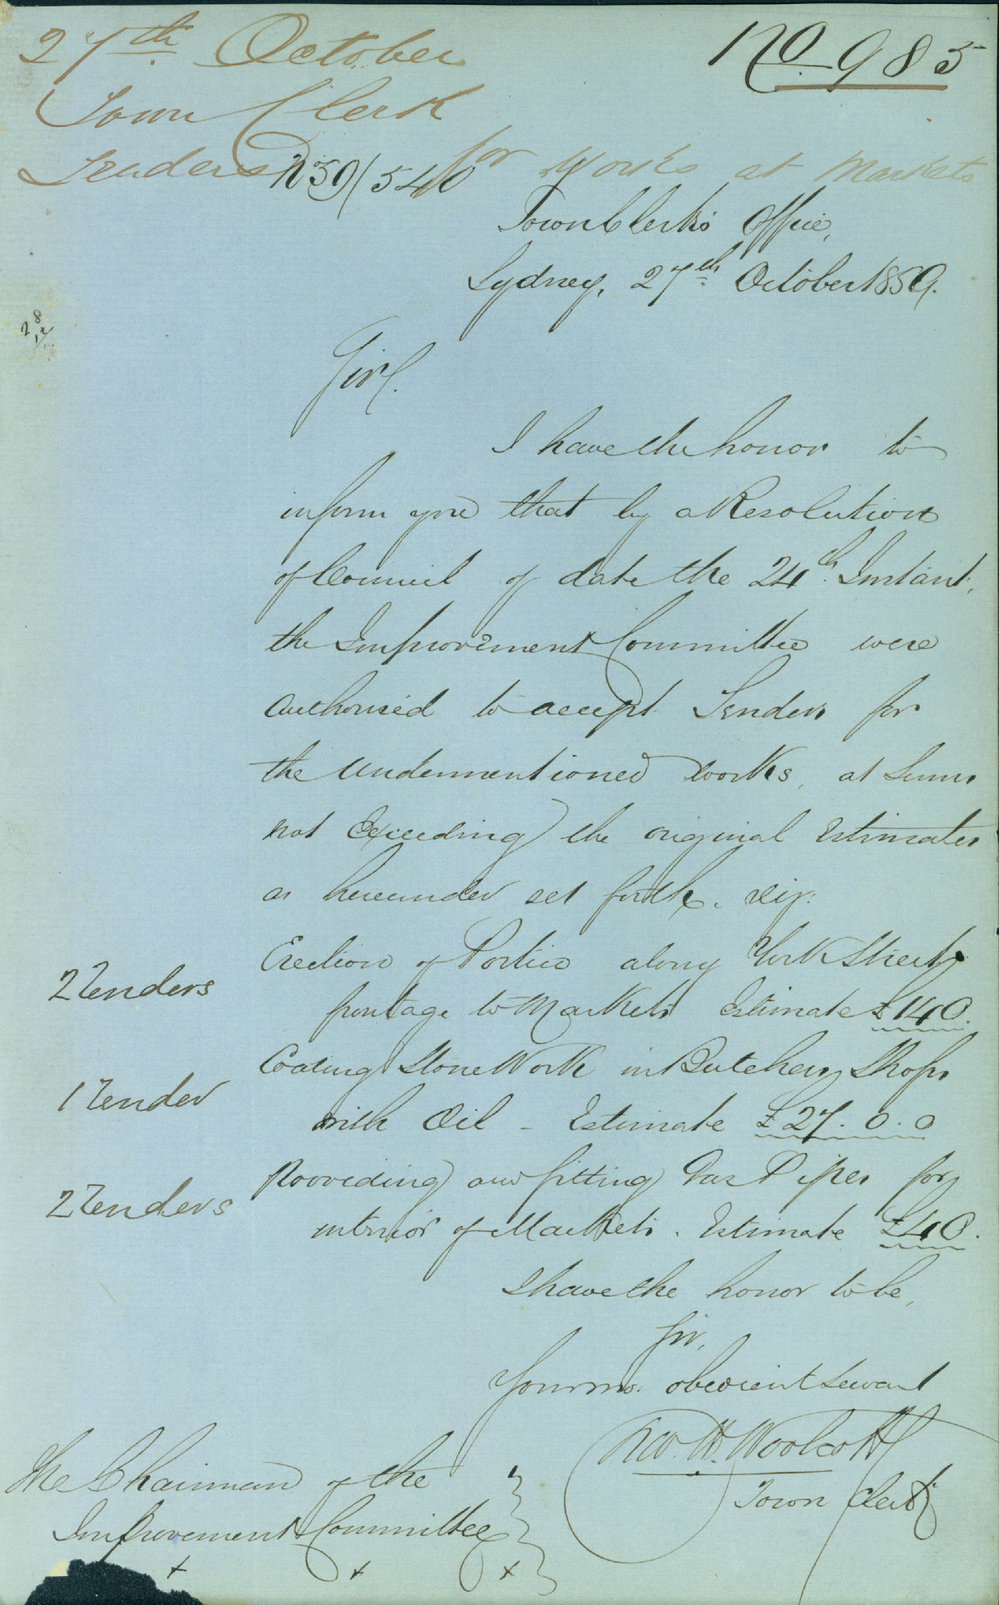 27th October
No 985
Town Clerk
Tenders for Works at Markets
No 59/540
Town Clerk's Office,
Sydney, 27th October 1859.
28/12
Sir,
I have the honor to
inform you that by a Resolution
of Council of date the 24th Instant,
the Improvement Committee were
authorised to accept Tenders for
the undermentioned works, at sums
not exceeding the original Estimates
as hereunder set forth. viz:
2 Tenders
Erection of Portico along York Street
frontage to Markets Estimate £140.
1 Tender
Coating Stone Work in Butchers Shops
with Oil - Estimate £27.0.0
2 Tenders
Providing and fitting Gas Pipes for
interior of Markets. Estimate £40.
I have the honor to be,
Sir,
Your mo. obedient Servant
Woolcott
Town Clerk
The Chairman of the
Improvement Committee
x x x